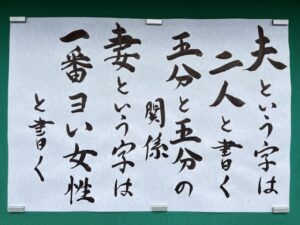 夫という字は
二人と書く
五分と五分の
関係
妻という字は
一番ヨい女性
と書く